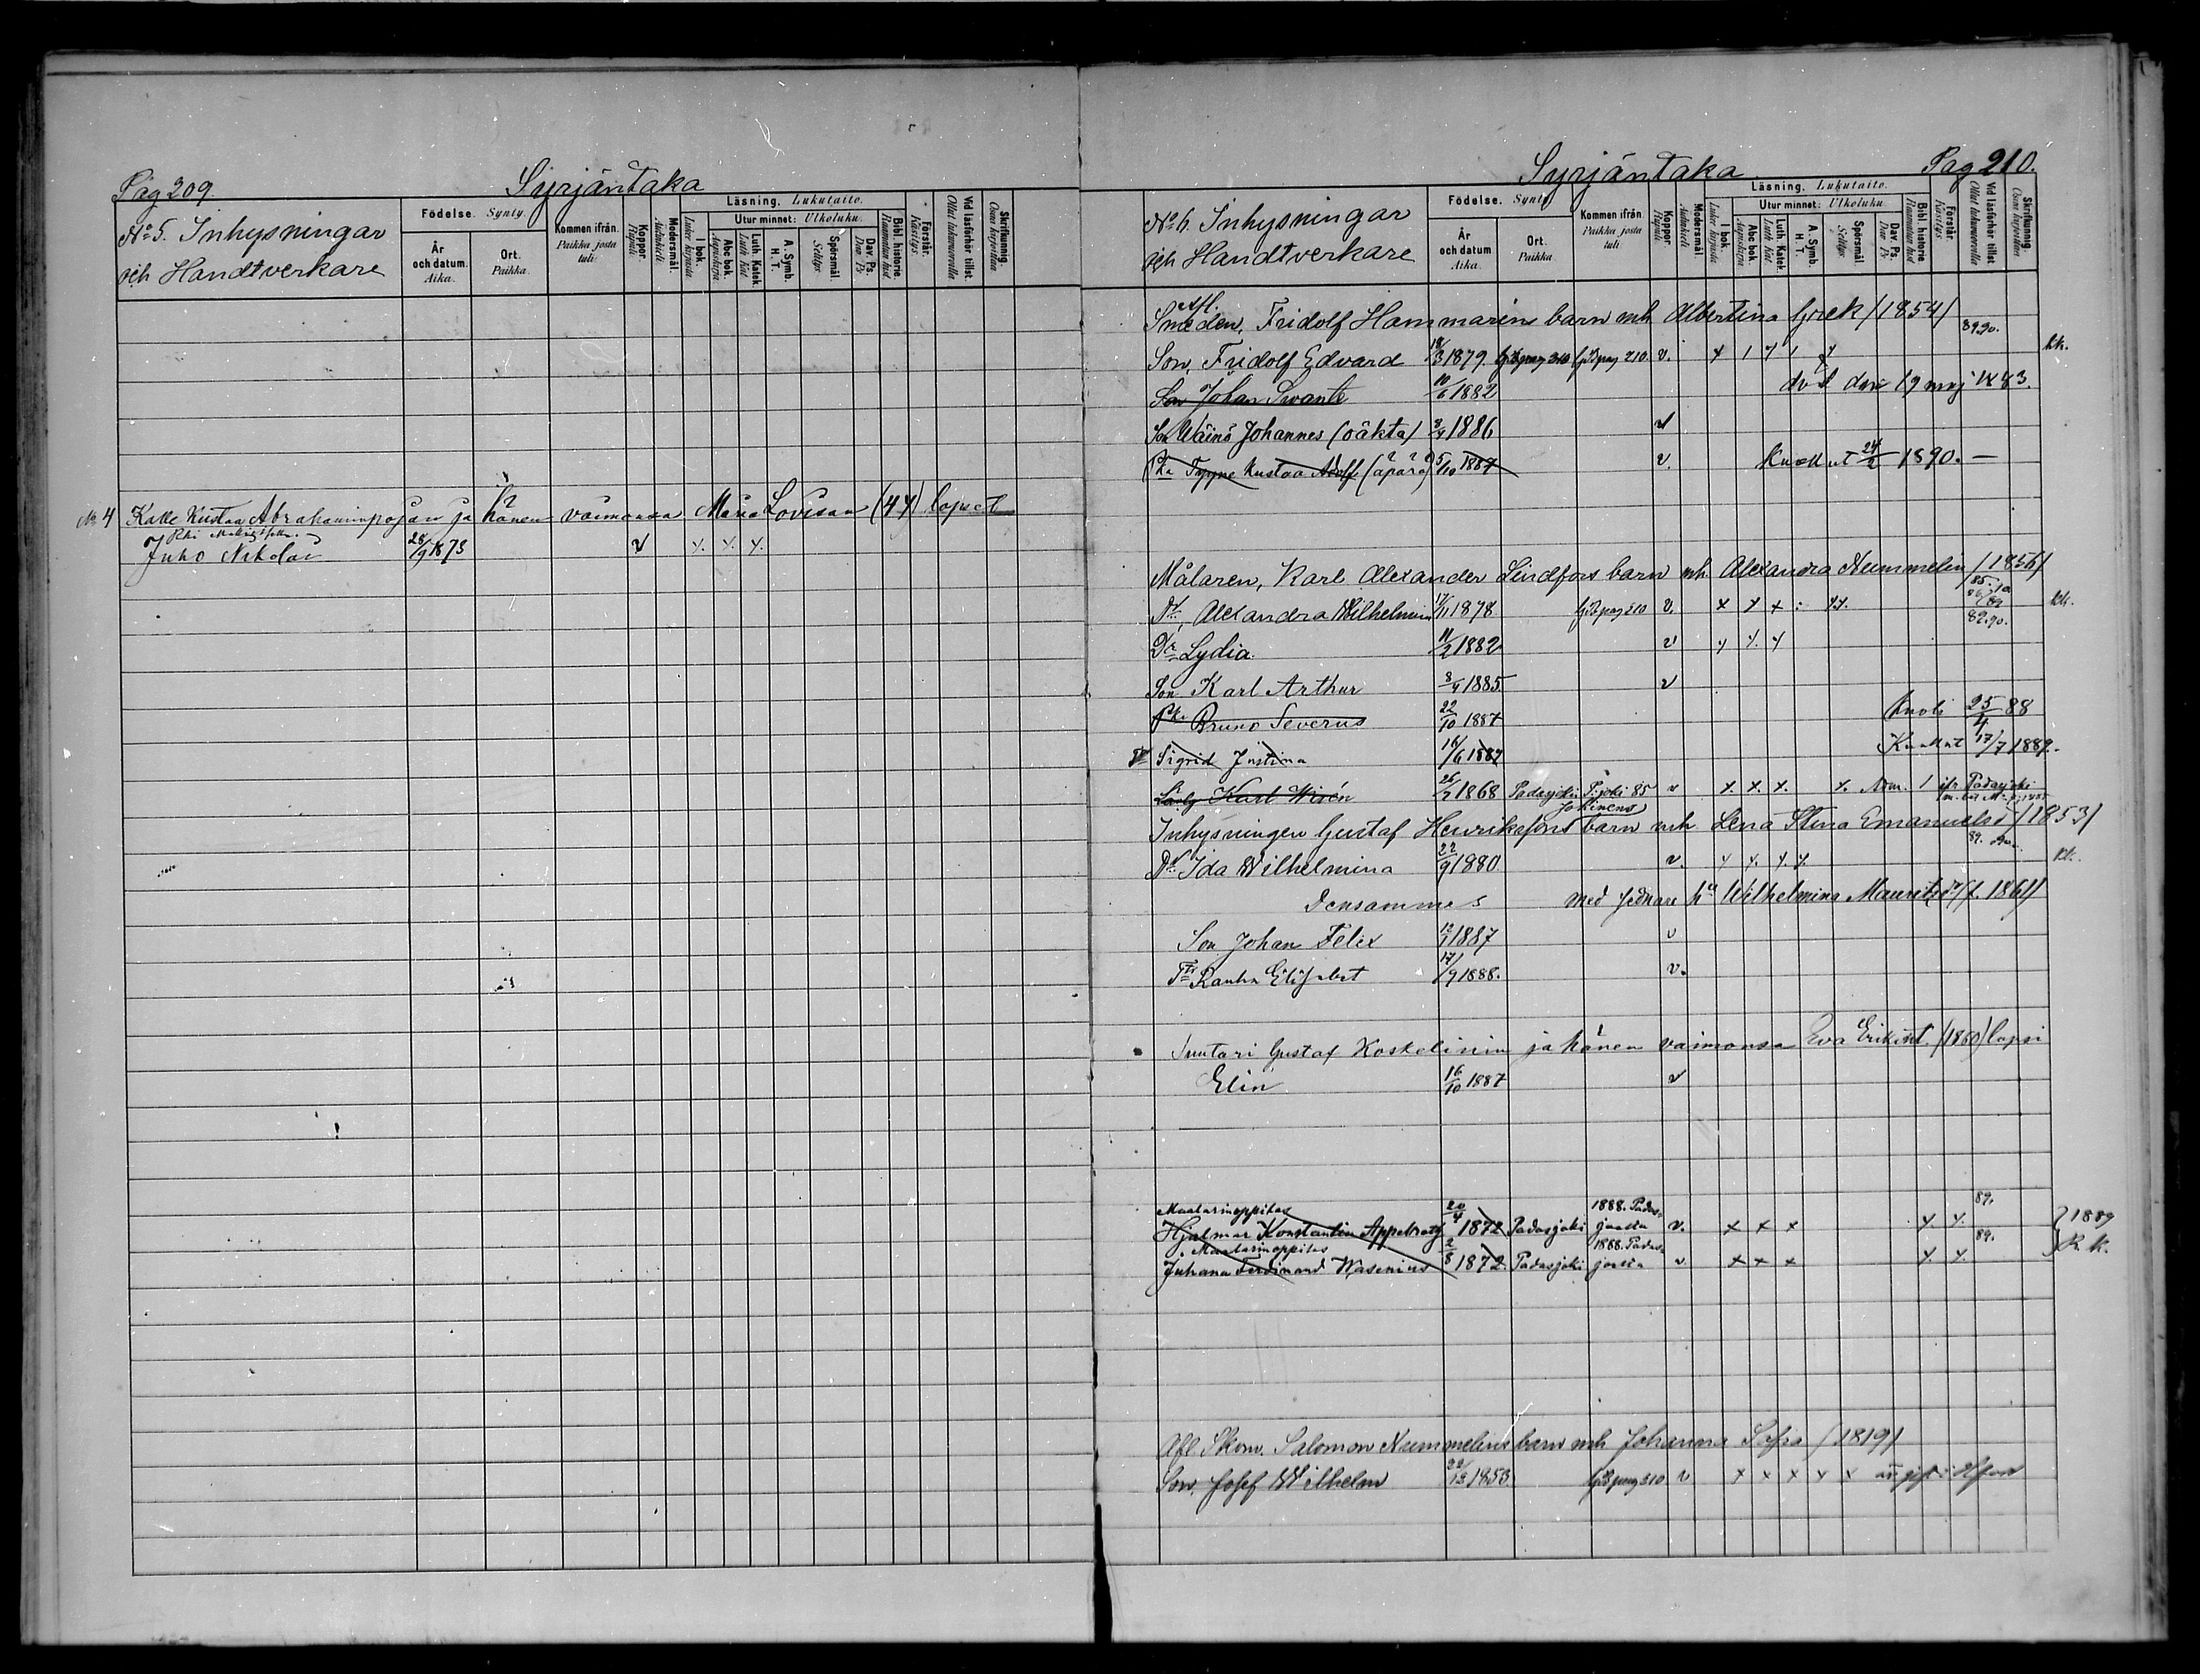 Pag 209. Syrjäntaka
No 5. Inhysningar
och Handtverkare
Födelse. Synty.
År och datum. Aika.
Ort. Paikka.
Kommen ifrån. Paikka josta tuli.
Koppor. Rupuli
Modersmål. Äidinkieli
Läsning. Lukutaito.
I bok. Lukee kirjasta
Utur minnet: Ulkoluku.
Abc bok. Aapiskirja
Luth. Katek. Luth. Kat.
A. Symb. H. T.
Spörsmål. Selitys.
Dav. Ps. Dav. Ps.
Bibl. historie. Raamatun hist.
Förstår. Käsitys.
Vid läsförhör tillst. Ollut lukuvuorolla
Skrifkunnig. Osaa kirjoittaa
No 4 Kalle Kustaa Abrahaminpojan ja hänen vaimonsa Maria Lovisan (44) lapset
Juho Nikolai 28/9 1873 v y. y. y.
Syrjäntaka Pag 210.
No 6. Inhysningar
och Handtverkare
Födelse. Synty.
År och datum. Aika.
Ort. Paikka.
Kommen ifrån. Paikka josta tuli.
Koppor. Rupuli
Modersmål. Äidinkieli
Läsning. Lukutaito.
I bok. Lukee kirjasta
Utur minnet: Ulkoluku.
Abc bok. Aapiskirja
Luth. Katek. Luth. Kat.
A. Symb. H. T.
Spörsmål. Selitys.
Dav. Ps. Dav. Ps.
Bibl. historie. Raamatun hist.
Förstår. Käsitys.
Vid läsförhör tillst. Ollut lukuvuorolla
Skrifkunnig. Osaa kirjoittaa
Afl.
Smeden, Fridolf Hammarins barn mh Albertina Grek (1854)
89.90.
Son, Fridolf Edvard 18/3 1879 pag 210 pag 210 v. kk.
Son Johan Swante 10/6 1882 död den 19 maj 1883.
Son Wäinö Johannes (oäkta) 3/4 1886 v
Pka Tyyne Kustaa Adolf (äpärä) 5/10 1887 v. Kuollut 24/2 1890. —
Målaren, Karl Alexander Lindfors barn mh Alexandra Nummelin (1856)
Dr, Alexandra Wilhelmina 17/11 1878 pag 210 v. 89.90. kk.
Dr Lydia 11/2 1882 v y y. y
Son Karl Arthur 8/4 1885 v
Pka Bruno Severus 22/10 1887 kuoli 25/4 88
Tr Sigrid Justina 16/6 1887 Kuollut 17/7 1889.
Lärlg Karl Wirén 26/7 1868 Padasjoki P.joki 85 v x. x. x. Adm. 1 Padasjoki
Jokinens
Inhysningen Gustaf Henrikssons barn mh Lena Stina Emanuelsd (1853)
Dr Ida Wilhelmina 22/9 1880 v. y y. y. y.
Densammes med sednare hu Wilhelmina Mauritzdr (f. 1861)
Son Johan Felix 12/1 1887 v
Tr Rauha Elisabet 17/9 1888. v.
Suutari Gustaf Koskelinin ja hänen vaimonsa Eva Erikint. (1860) lapsi
Elin 16/10 1887 v
Maalarinoppilas
Hjalmar Konstantin 20/4 1872 Padasjoki 1888. Padasjoelta v. x x x y y. 89. 1889
Maalarinoppilas
Juhana Ferdinand Wasenius 2/8 1872. Padasjoki 1888. Padasjoelta v x x x y. y. 89. R. k.
Afl Skom. Salomon Nummelins barn mh Johanna Sofia (1819)
Son, Josef Wilhelm 22/12 1853 pag 210 v x x x x x